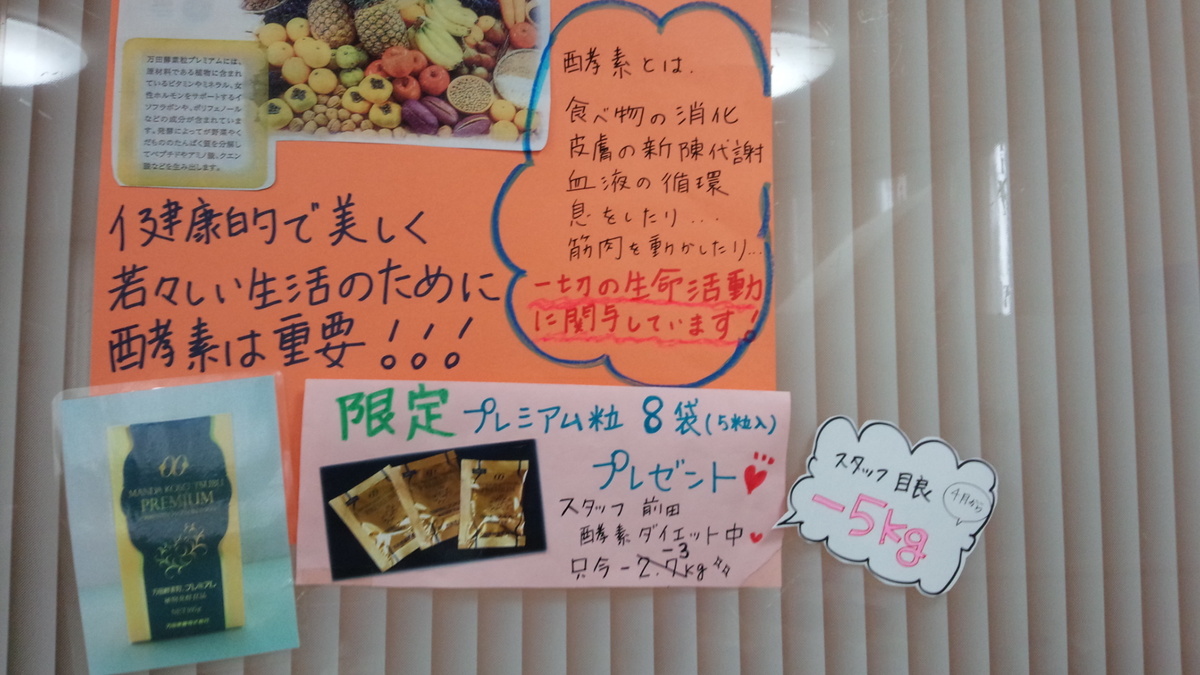 万田酵素粒プレミアムには、
原材料である植物に含まれ
ているビタミンやミネラル、女
性ホルモンをサポートするイ
ソフラボンや、ポリフェノール
などの成分が含まれていま
す。発酵によってが野菜やく
だもののたんぱく質を分解し
てペプチドやアミノ酸、クエン
酸などを生み出します。
酵素とは、
食べ物の消化
皮膚の新陳代謝
血液の循環
息をしたり...
筋肉を動かしたり...
一切の生命活動
に関与しています!
健康的で美しく
若々しい生活のために
酵素は重要!!!
MANDA KOSO TSUBU
PREMIUM
万田酵素粒 プレミアム
植物発酵食品
万田発酵株式会社
限定 プレミアム粒 8袋(5粒入)
プレゼント
スタッフ 前田
酵素ダイエット中
-3
只今-2.7kg
スタッフ 目良
4月から
-5kg